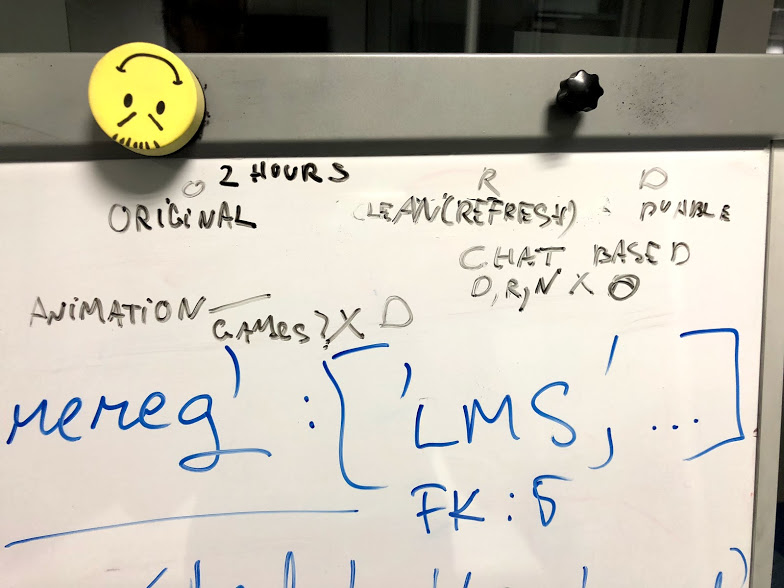 O 2 HOURS R D
ORIGINAL CLEAN(REFRESH) DURABLE
CHAT BASED
D, R, N X O
ANIMATION GAMES? X D
' : ['LMS', ...]
FK : 5